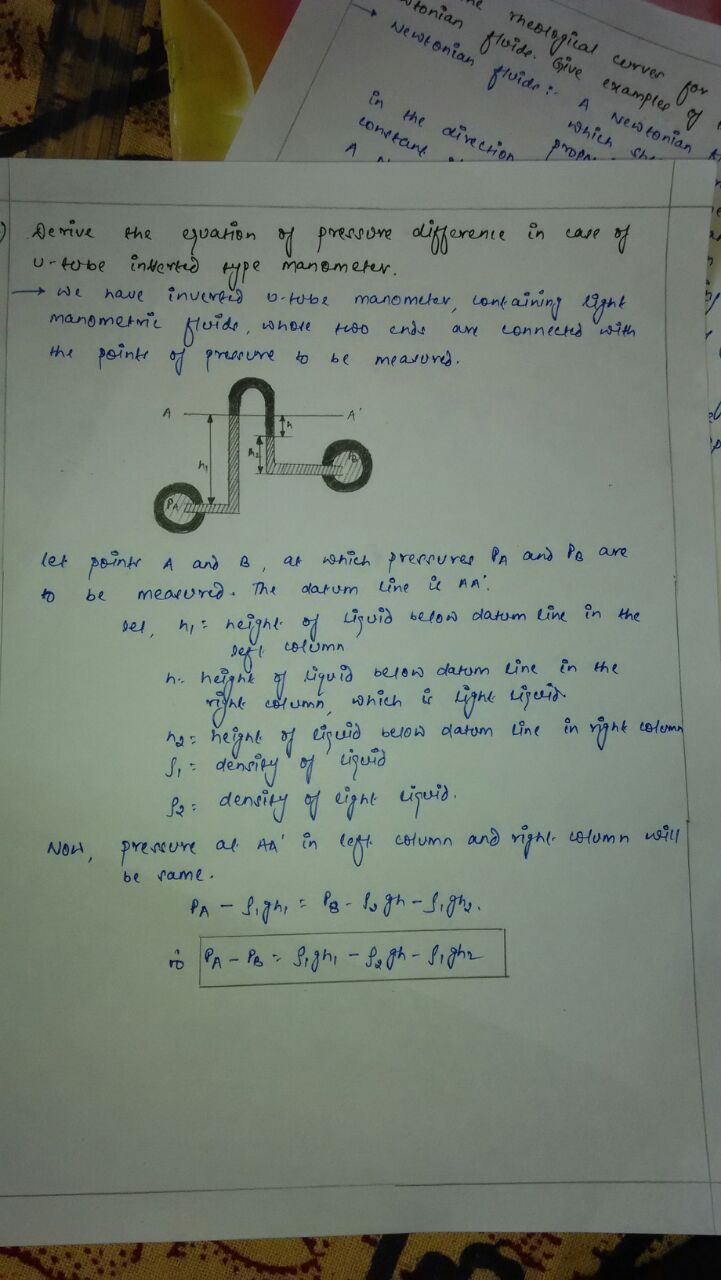 the rheological curves for
wtonian fluids. Give examples of
→ Newtonian fluids :- A Newtonian
which sh
in the direction prop
constant
A
) Derive the equation of pressure difference in case of
U-tube inverted type manometer.
→ We have inverted U-tube manometer, containing light
manometric fluids, whose two ends are connected with
the points of pressure to be measured.
A A'
h
h1 h2
PA
let points A and B, at which pressures PA and PB are
to be measured. The datum line is AA'.
let, h1 = height of liquid below datum line in the
left column
h = height of liquid below datum line in the
right column, which is light liquid.
h2 = height of liquid below datum line in right column
ρ1 = density of liquid
ρ2 = density of light liquid.
Now, pressure at AA' in left column and right column will
be same.
PA - ρ1gh1 = PB - ρ2gh - ρ1gh2.
PA - PB = ρ1gh1 - ρ2gh - ρ1gh2